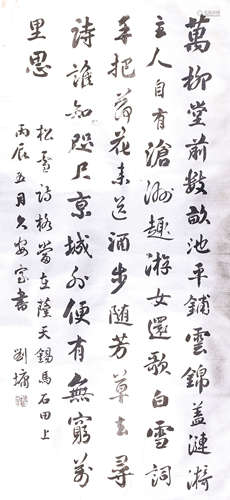 萬柳堂前數畝池平鋪雲錦蓋漣漪
主人自有滄洲趣游女還歌白雪詞
手把荷花来送酒步随芳草去尋
詩誰知咫尺京城外便有無窮萬
里思
松雪詩格當在薩天錫馬石田上
丙辰五月久安室書 劉墉